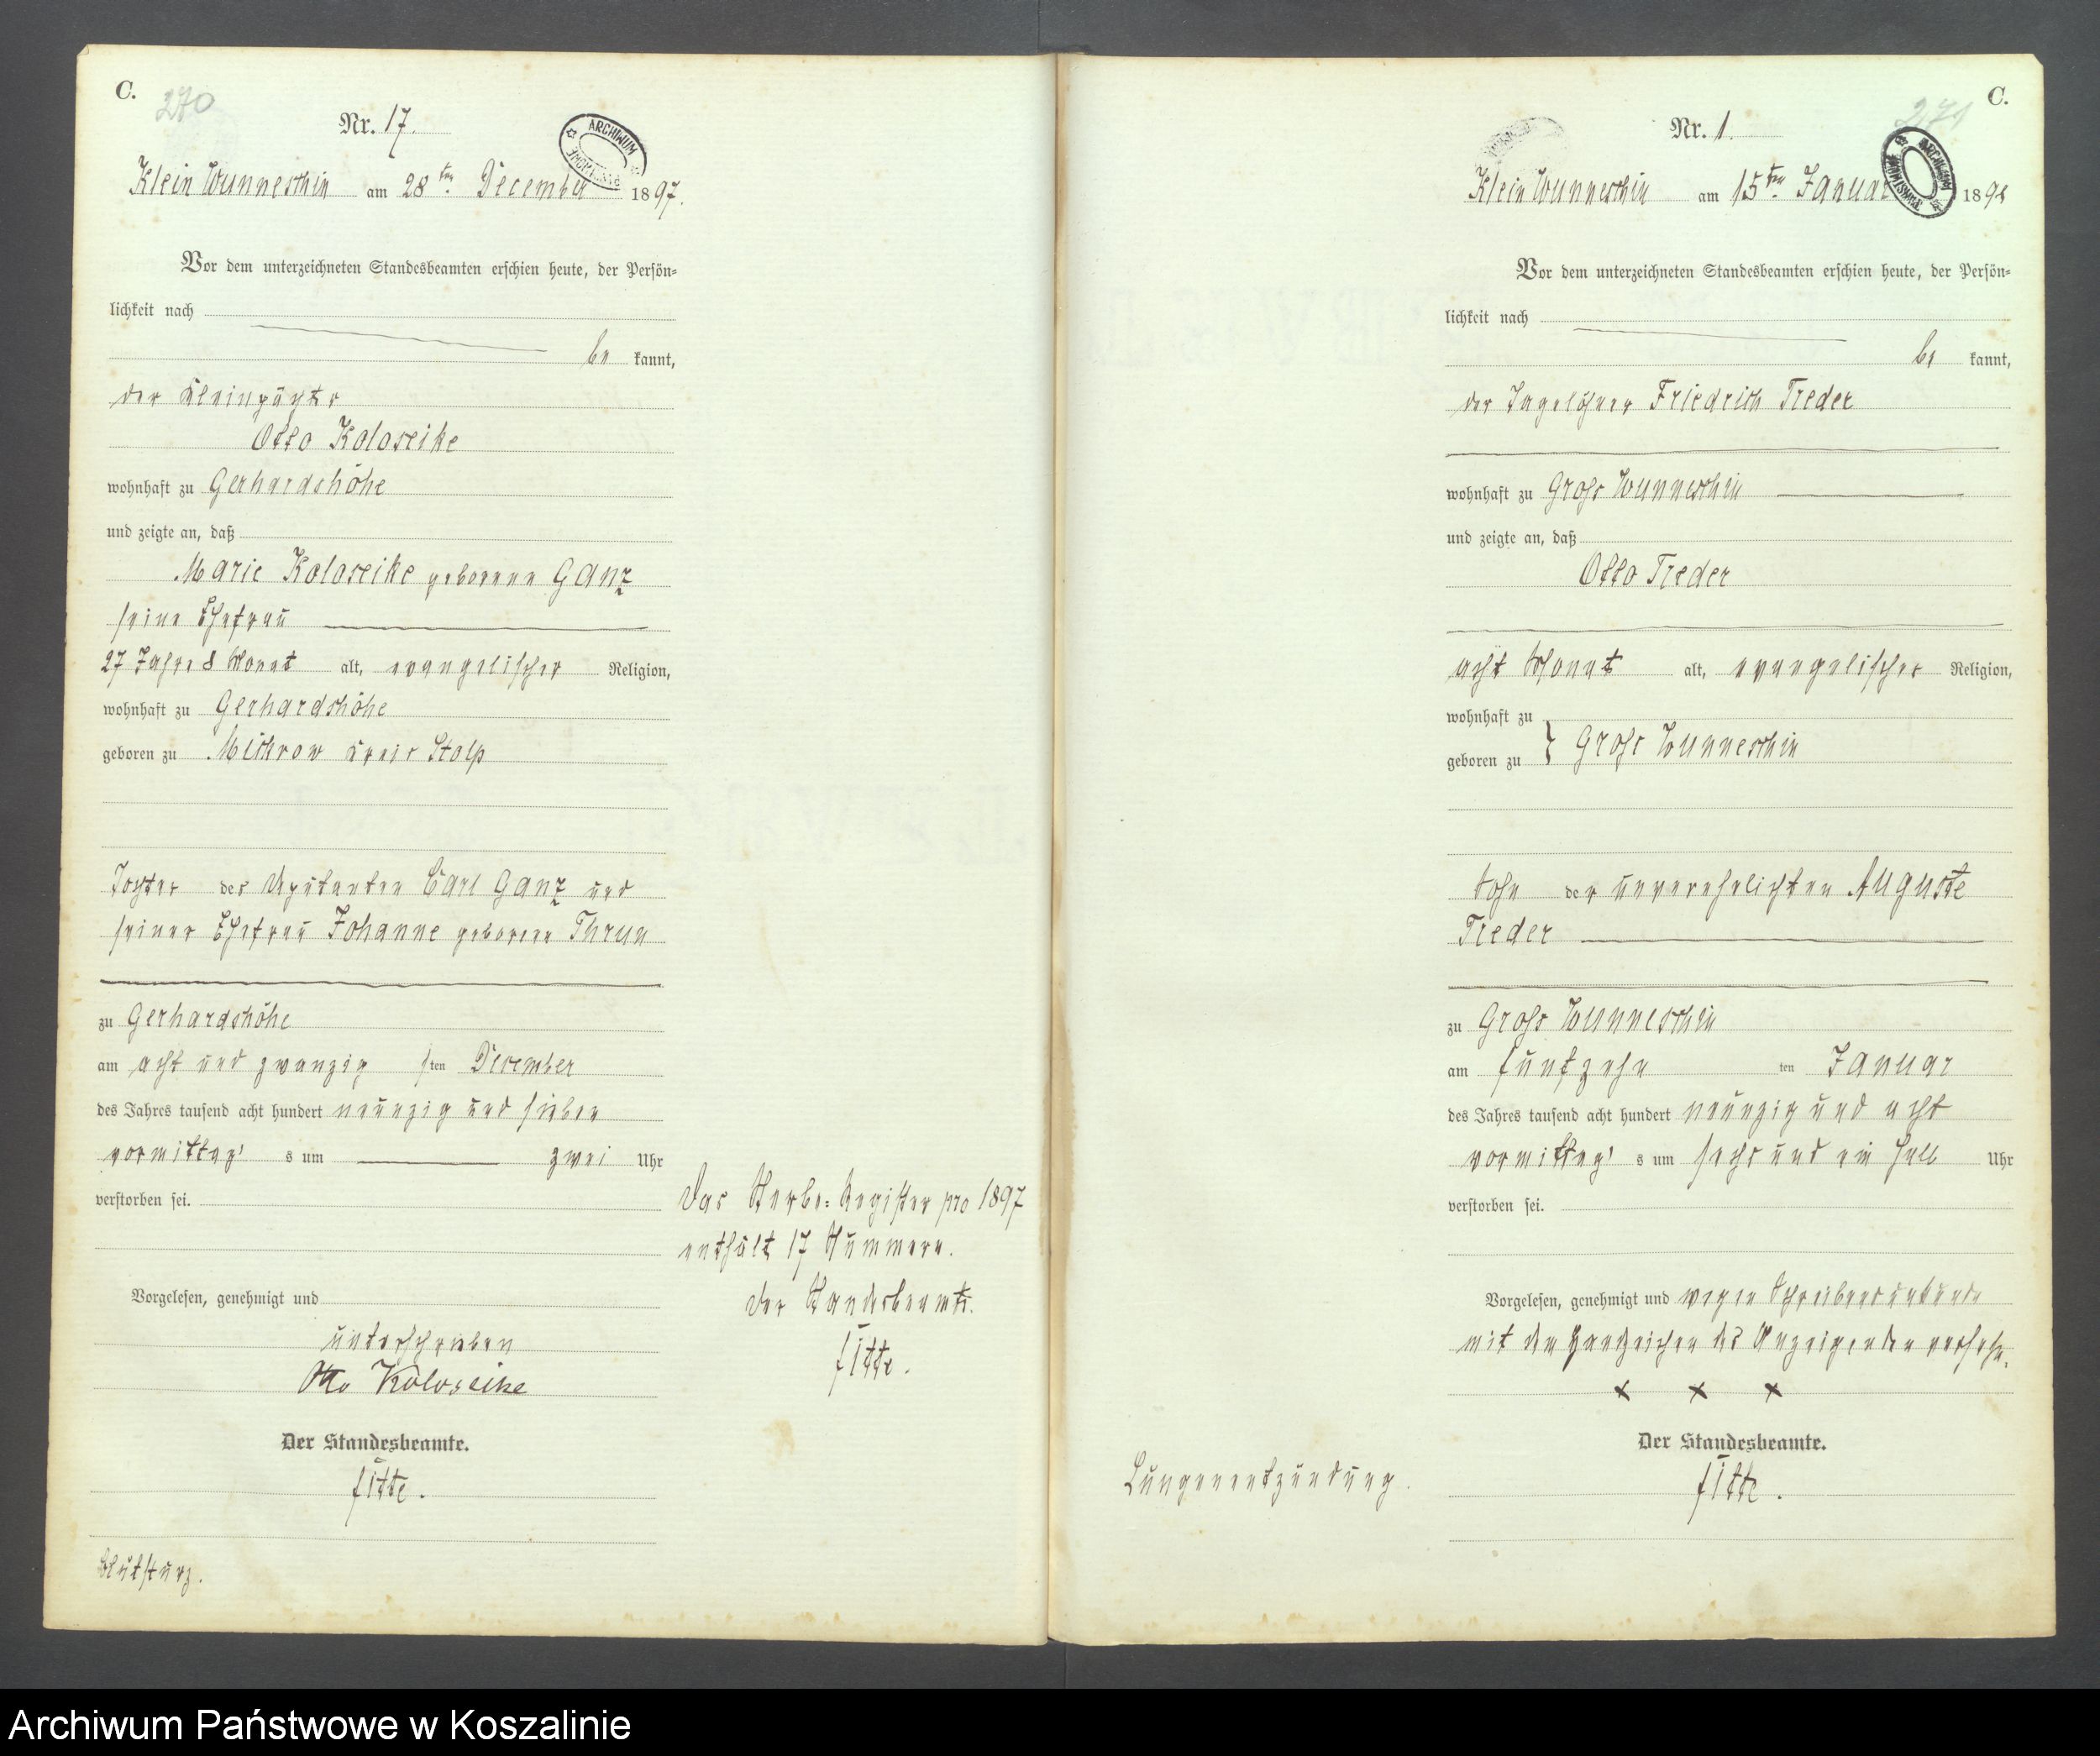 C.
270
Nr. 17.
ARCHIWUM
Klein Wunneschin am 28ten December 1897.
Vor dem unterzeichneten Standesbeamten erschien heute, der Persön-
lichkeit nach
be kannt,
der Kleinpächter
Otto Koloseike
wohnhaft zu Gerhardshöhe
und zeigte an, daß
Marie Koloseike geborene Ganz
seine Ehefrau
27 Jahre 8 Monat alt, evangelischer Religion,
wohnhaft zu Gerhardshöhe
geboren zu Mickrow Kreis Stolp
Tochter des Deputanten Carl Ganz und
seiner Ehefrau Johanne geborene Thrun
zu Gerhardshöhe
am acht und zwanzig sten December
des Jahres tausend acht hundert neunzig und sieben
vormittag s um zwei Uhr
verstorben sei.
Vorgelesen, genehmigt und
unterschrieben
Otto Koloseike
Der Standesbeamte.
Fitte.
Blutsturz.
Das Sterbe-Register pro 1897
enthält 17 Nummern.
Der Standesbeamte.
Fitte.
C.
271
Nr. 1.
ARCHIWUM
Klein Wunneschin am 15ten Januar 1898
Vor dem unterzeichneten Standesbeamten erschien heute, der Persön-
lichkeit nach
be kannt,
der Tagelöhner Friedrich Treder
wohnhaft zu Gross Wunneschin
und zeigte an, daß
Otto Treder
acht Monat alt, evangelischer Religion,
wohnhaft zu
geboren zu } Gross Wunneschin
Sohn der unverehelichten Auguste
Treder
zu Gross Wunneschin
am funfzehn ten Januar
des Jahres tausend acht hundert neunzig und acht
vormittag s um sechs und ein halb Uhr
verstorben sei.
Vorgelesen, genehmigt und wegen Schreibensunkunde
mit den Handzeichen des Anzeigenden versehn.
x x x
Der Standesbeamte.
Fitte.
Lungenentzündung.
Archiwum Państwowe w Koszalinie